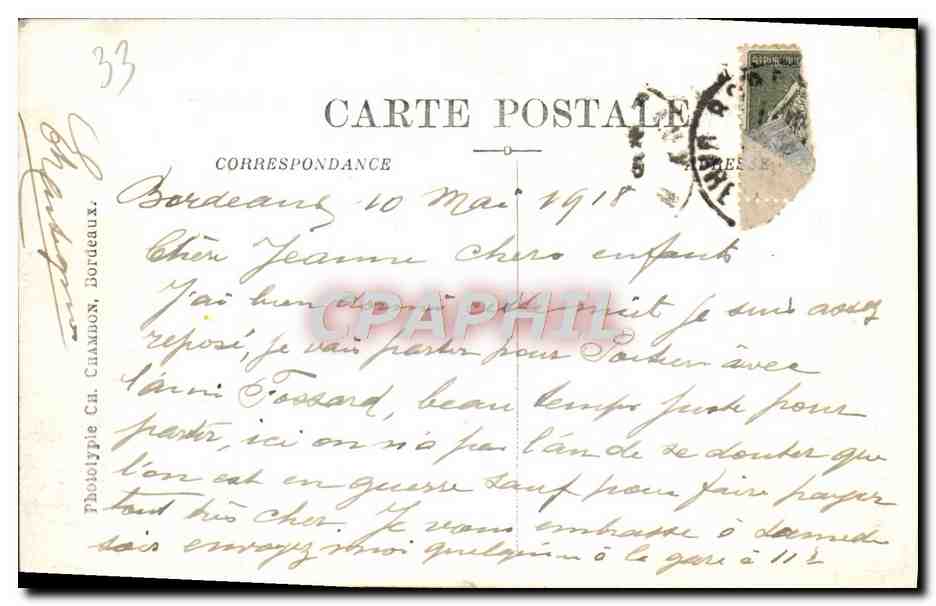 33
CARTE POSTALE
CORRESPONDANCE
ADRESSE
Bordeaux 10 Mai 1918
Chère Jeanne chers enfants
J'ai bien dormi cette nuit je suis assez
reposé, je vais partir pour Poitiers avec
l'ami Fossard, beau temps juste pour
partir, ici on n'a pas l'air de se douter que
l'on est en guerre sauf pour faire payer
tout très cher. Je vous embrasse à samedi
soir envoyez moi quelqu'un à la gare à 11h
Phototypie CH. CHAMBON, Bordeaux.
CPAPHIL